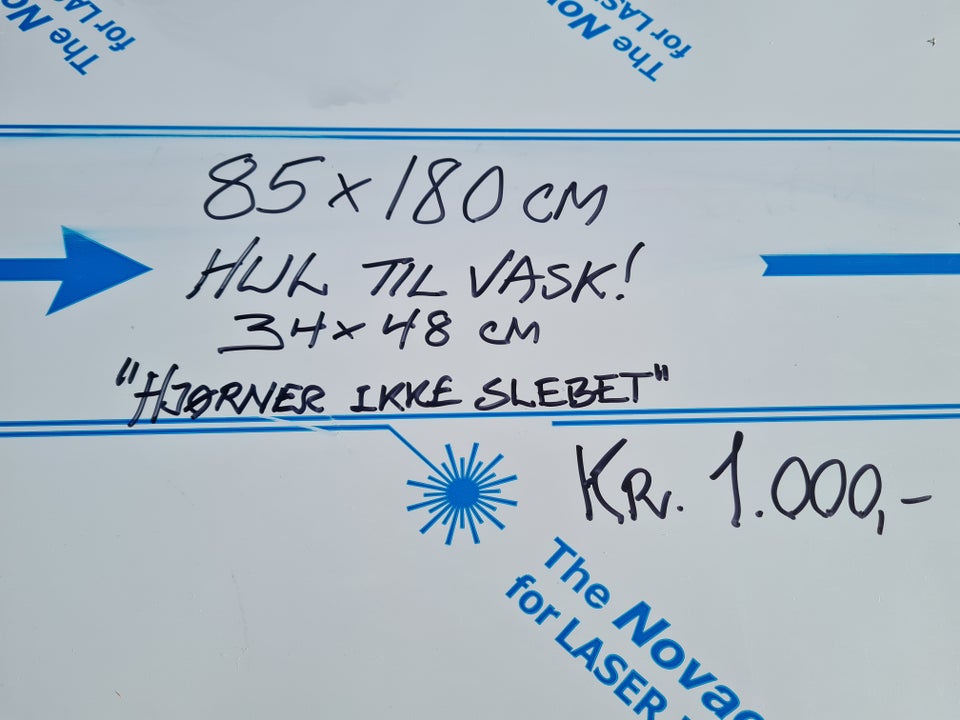 The No
for LAS
The No
for LAS
85 x 180 CM
HUL TIL VASK!
34 x 48 CM
"HJØRNER IKKE SLEBET"
KR. 1.000,-
The Novac
for LASER